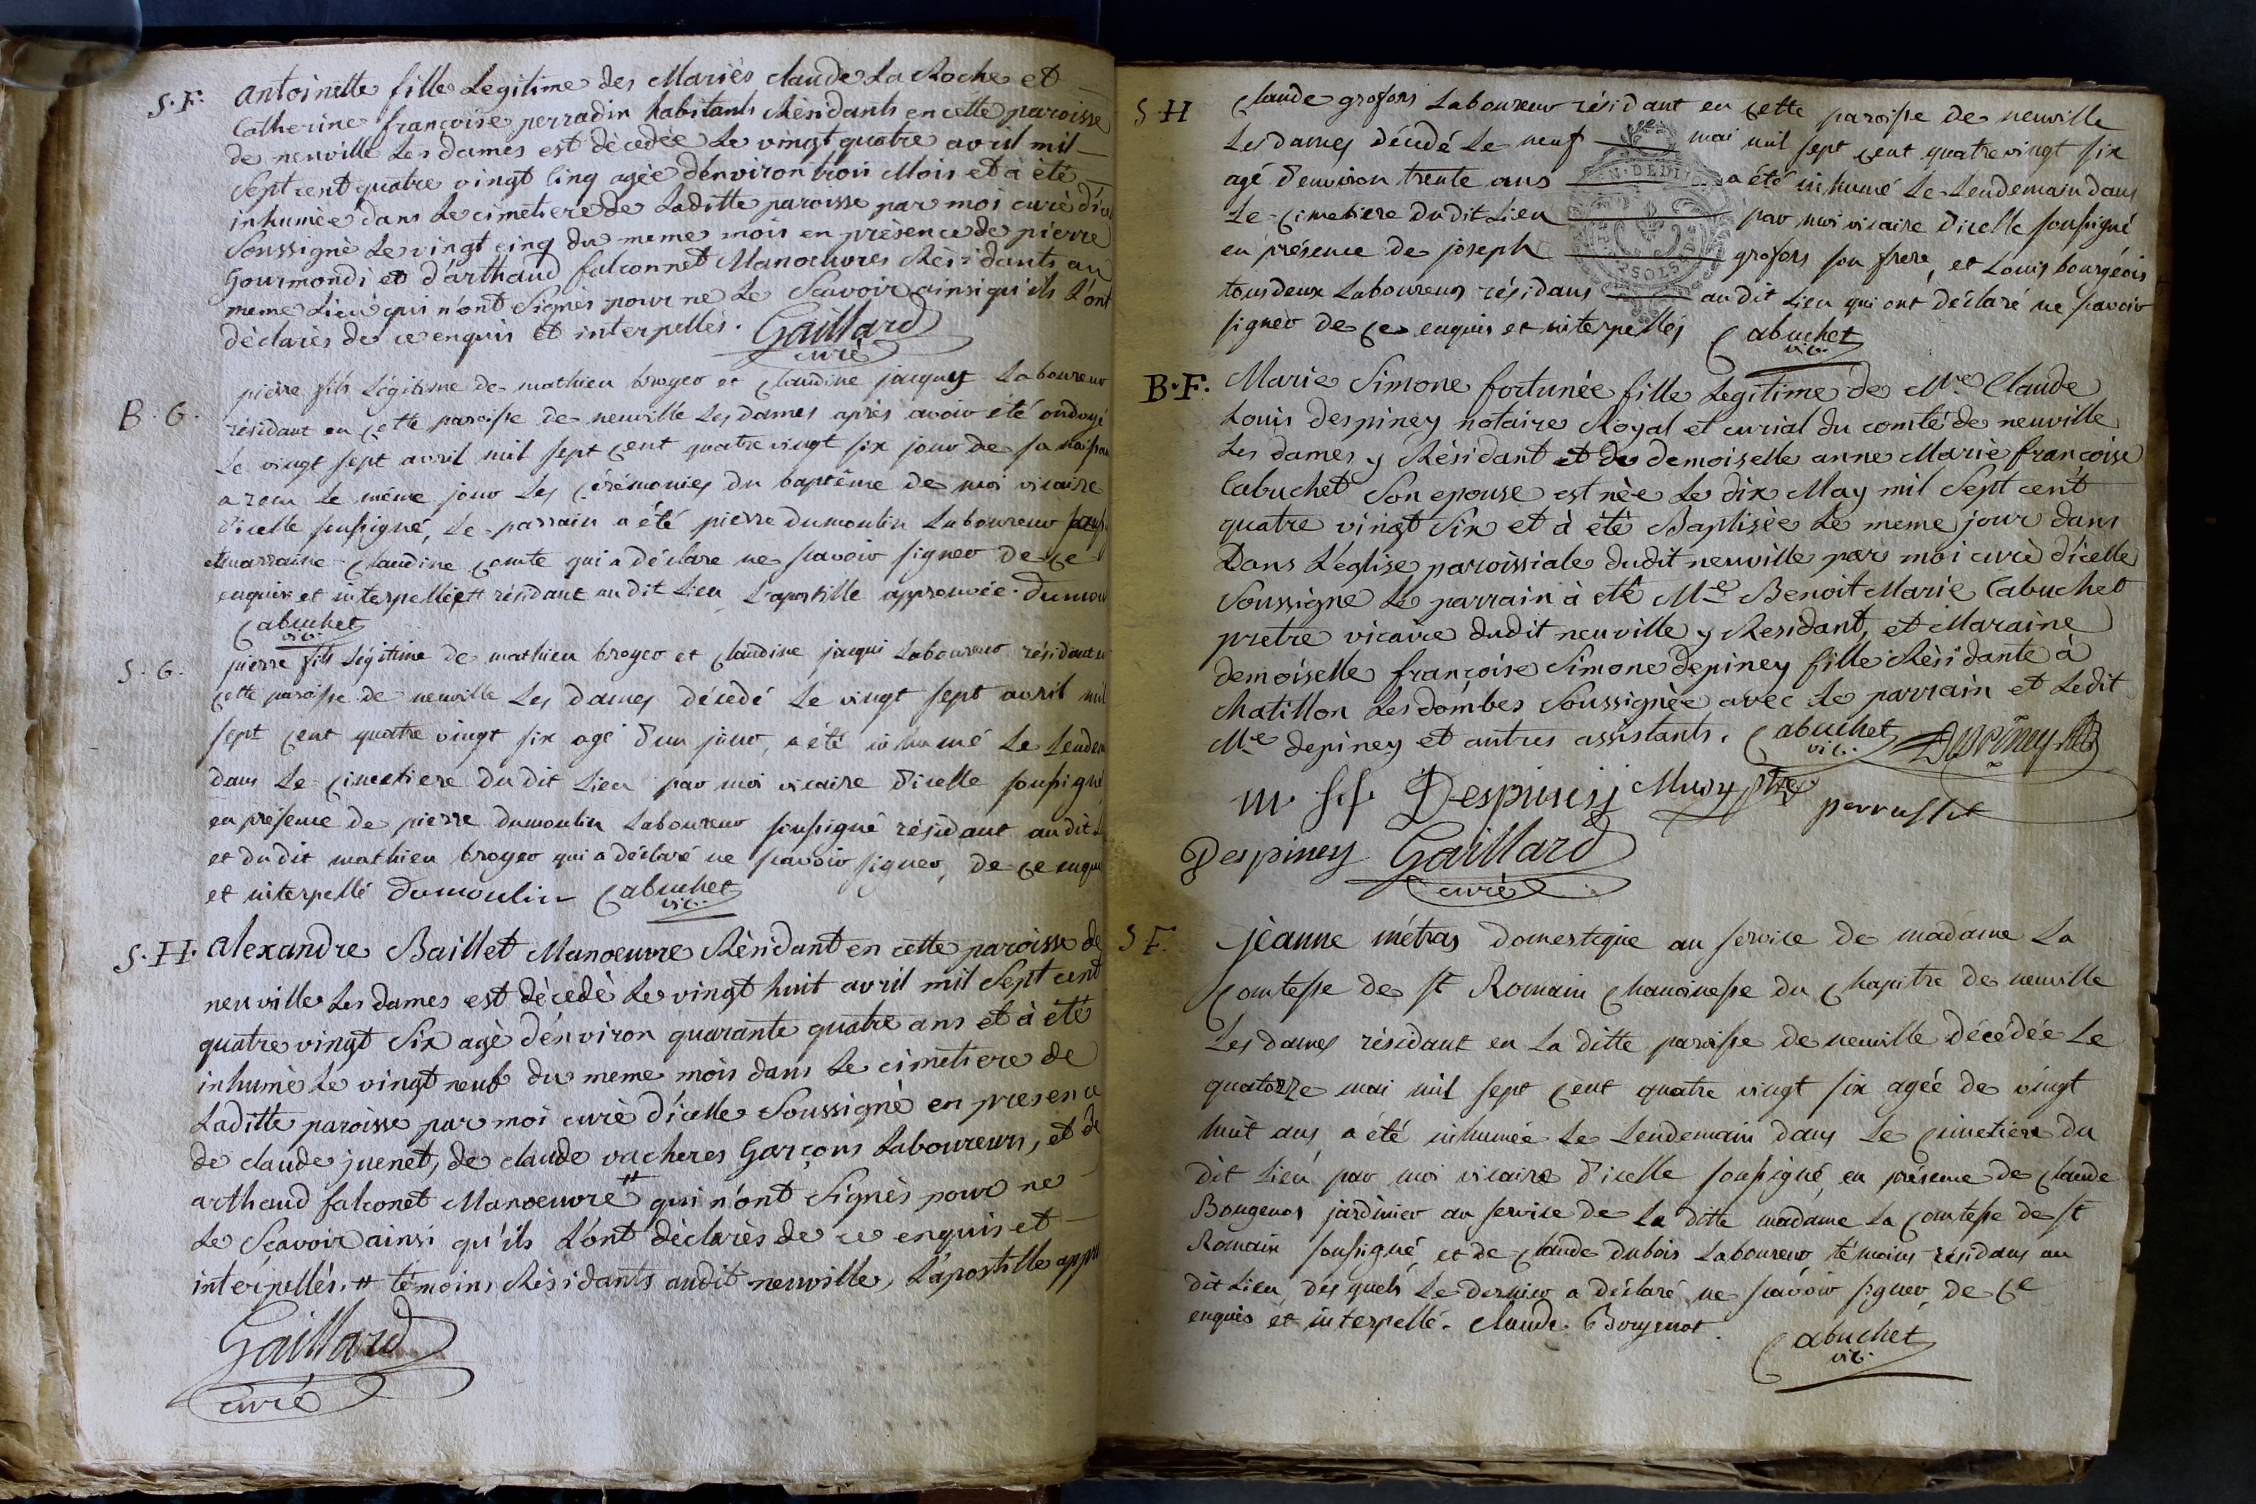 S. F. antoinette fille Legitime des Mariès claude La Roche et
Catherine francoise perradin habitants Rèsidants en cette paroisse
de neuville Les dames est dècedèe Le vingt quatre avril mil
Sept cent quatre vingt Cinq agèe d'environ trois Mois et à ètè
inhumèe dans Le cimetiere de Laditte paroisse par moi curè d'ice
Soussignè Le vingt cinq du meme mois en prèsence de pierre
Gourmondi et d'arthaud falconnet Manoeuvres Rèsidants au
meme Lieu qui n'ont Signès pour ne Le Scavoir ainsi qu'ils L'ont
dèclarès de ce enquis et interpellès. Gaillard
curè
B. G. pierre fils Légitime de mathieu broyer et Claudine jacquet Laboureur
résidant en cette paroisse de neuville Les dames après avoir été ondoyé
Le vingt sept avril mil sept cent quatre vingt six jour de sa naissan
a recu Le même jour Les cérémonies du baptême de moi vicaire
d'icelle soussigné, Le parrain a été pierre dumoulin Laboureur
et marraine Claudine comte qui a déclaré ne scavoir signer de ce
enquise et interpellée # résidant au dit Lieu L'apostille approuvée. dumou
Cabuchet
vic.
S. G. pierre fils Légitime de mathieu broyer et Claudine jacqui Laboureur résidant en
cette paroisse de neuville Les dames décedé Le vingt sept avril mil
sept cent quatre vingt six agé d'un jour, a été inhumé Le Lendem
dans Le cimetiere du dit Lieu par moi vicaire d'icelle soussigné
en présence de pierre dumoulin Laboureur soussigné résidant au dit L
et du dit mathieu broyer qui a déclaré ne scavoir signer, de ce enqui
et interpellé dumoulin Cabuchet
vic.
S. H. alexandre Baillet Manoeuvre Rèsidant en cette paroisse de
neuville Les dames est dècedè Le vingt huit avril mil Sept cent
quatre vingt Six agè d'environ quarante quatre ans et à ètè
inhumè Le vingt neuf du meme mois dans Le cimetiere de
Laditte paroisse par moi curè d'icelle Soussignè en presence
de claude juenet, de claude vacheres Garçons Laboureurs, et de
arthaud falconet Manoeuvre # qui n'ont Signès pour ne
Le Sçavoir ainsi qu'ils L'ont dèclarès de ce enquis et
interpellès. # tèmoins Rèsidants audit neuville, L'apostille appr
Gaillard
curé
S H Claude grosfors Laboureur résidant en cette paroisse de neuville
Les dames décédé Le neuf mai mil sept cent quatre vingt six
agé d'environ trente ans a été inhumé Le Lendemain dans
Le cimetiere du dit Lieu par moi vicaire d'icelle soussigné
en présence de joseph grosfors son frere, et Louis bourgeois
tous deux Laboureurs résidans au dit Lieu qui ont déclaré ne scavoir
signer de ce enquis et interpellés Cabuchet
vic.
B. F. Marie Simone fortunèe fille Legitime de Mre Claude
Louis despiney notaire Royal et curial du comté de neuville
Les dames y Rèsidant et de demoiselle anne Marie francoise
Cabuchet Son epouse est nèe Le dix May mil Sept cent
quatre vingt Six et à ètè Baptisèe Le meme jour dans
Dans L'église paroissiale dudit neuville par moi curè d'icelle
Soussigne Le parrain à etè Mre Benoit Marie Cabuchet
pretre vicaire dudit neuville y Residant, et Maraine
demoiselle françoise Simone depiney fille Rèsidante à
chatillon Les dombes Soussignèe avec Le parrain et Ledit
Mre depiney et autres assistants. Cabuchet Despiney
vic.
Despiney perrusset
Despiney Gaillard
curè
S F. jeanne métras domestique au service de madame La
Comtesse de st Romain Chanoinesse du Chapitre de neuville
Les dames résidant en La ditte paroisse de neuville décédée Le
quatorze mai mil sept cent quatre vingt six agée de vingt
huit ans a été inhumée Le Lendemain dans Le cimetiere du
dit Lieu par moi vicaire d'icelle soussigné, en présence de Claude
Bougenot jardinier au service de La ditte madame La Comtesse de st
Romain soussigné et de Claude dubois Laboureur témoins résidans au
dit Lieu, des quels Le dernier a déclaré ne scavoir signer, de ce
enquis et interpellé. Claude Bougenot. Cabuchet
vic.